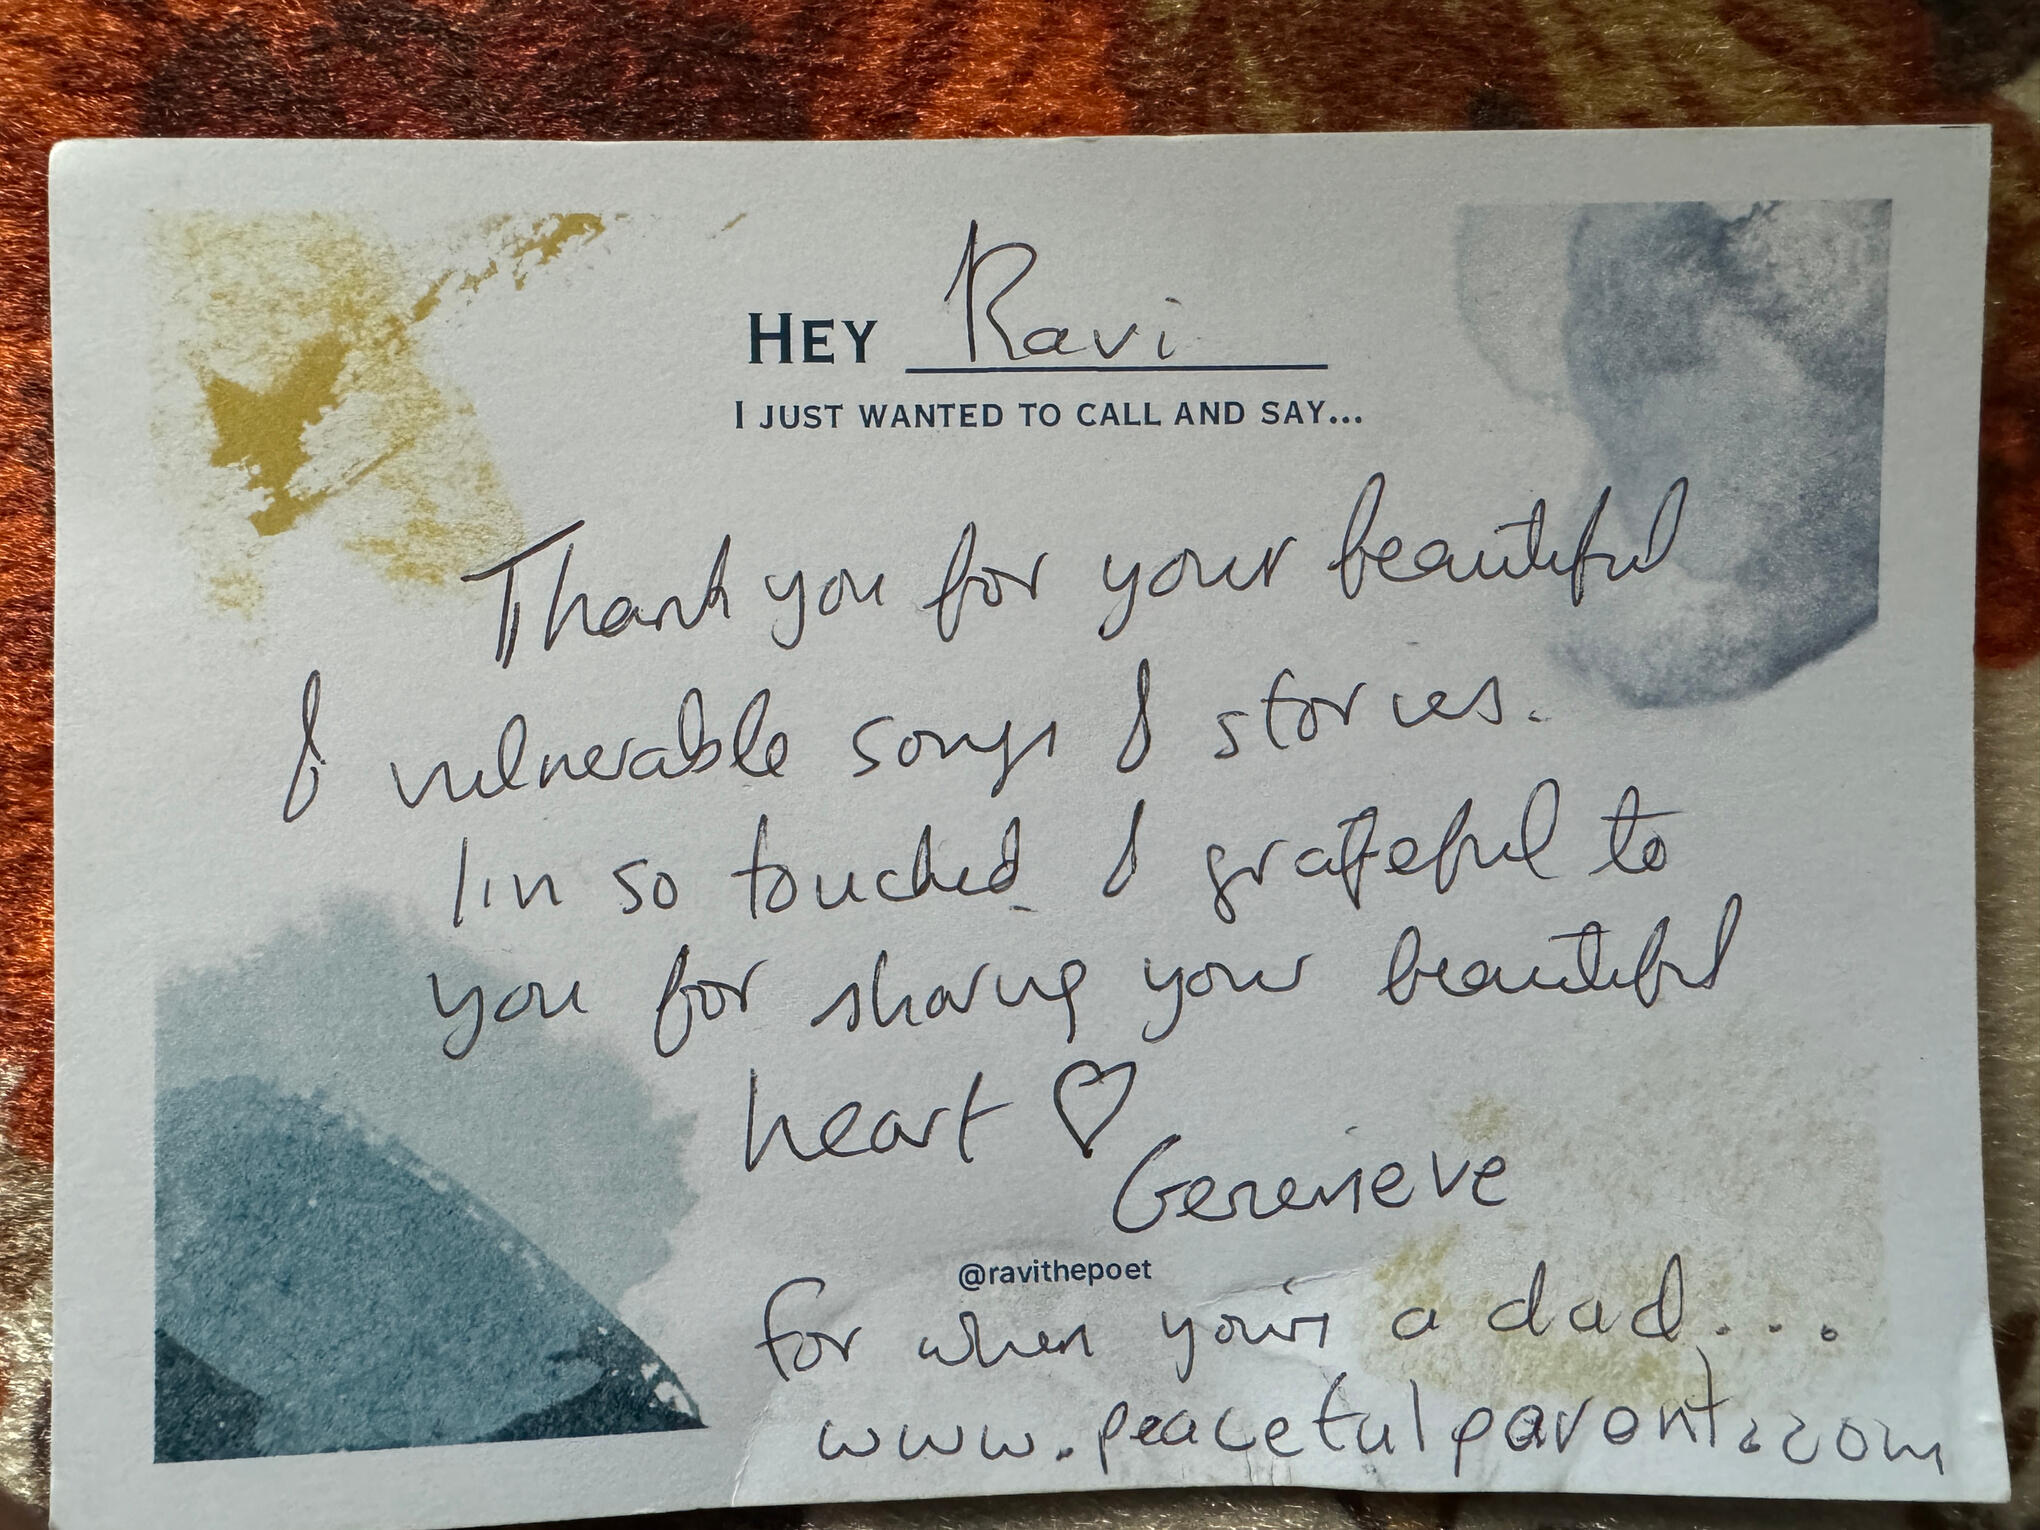 HEY Ravi
I JUST WANTED TO CALL AND SAY...
Thank you for your beautiful
& vulnerable songs & stories.
I'm so touched & grateful to
you for sharing your beautiful
heart ♡
Genevieve
@ravithepoet
for when you're a dad....
www.peacefulparent.com